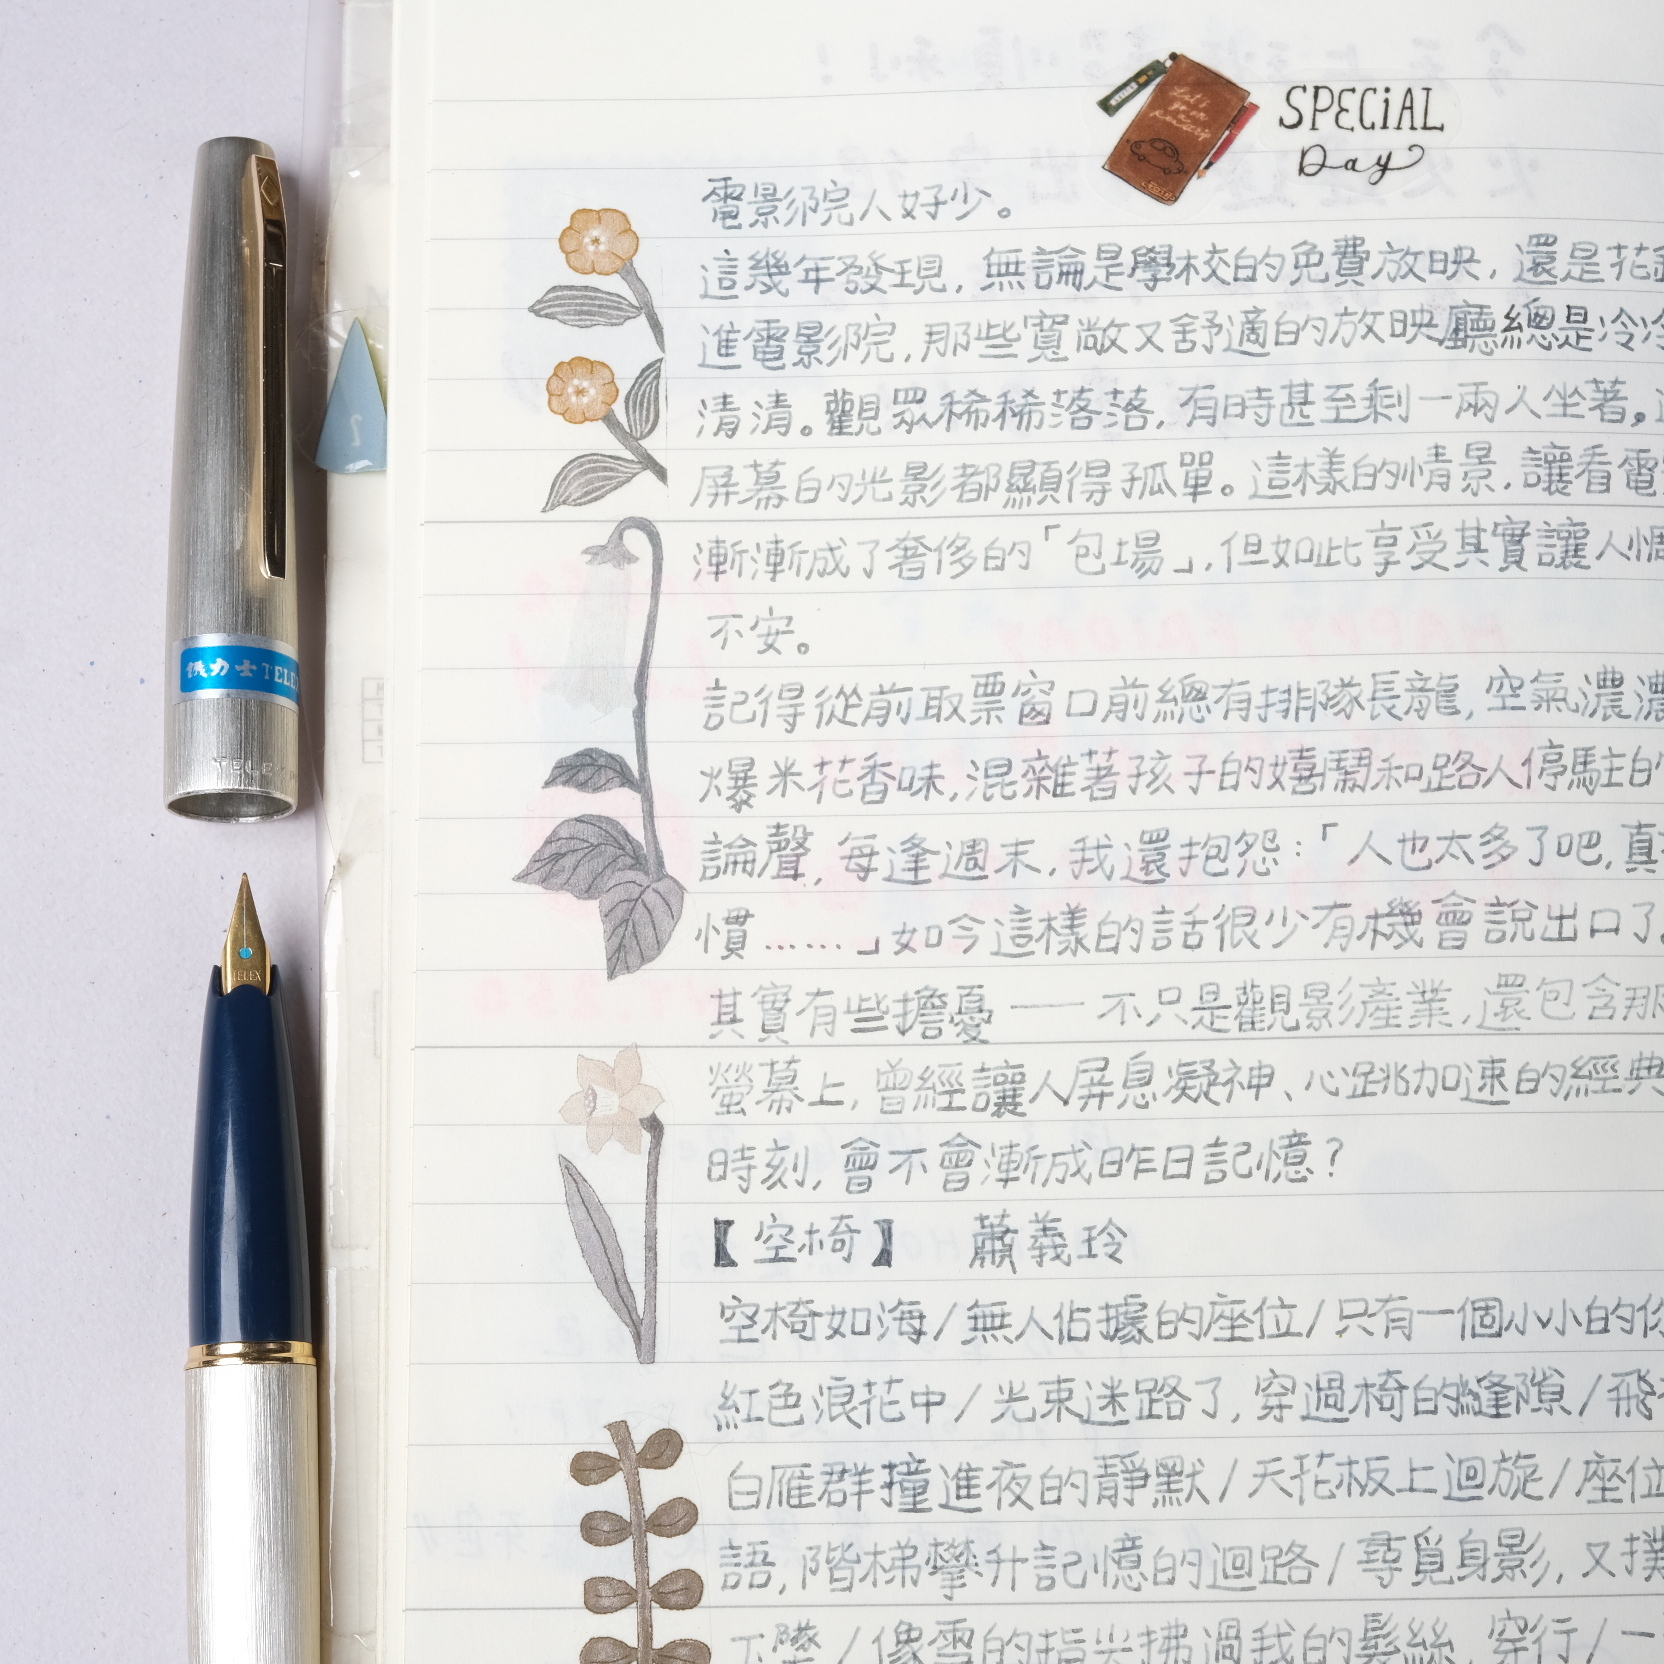 SPECiAL
Day
電影院人好少。
這幾年發現,無論是學校的免費放映,還是花
進電影院,那些寬敞又舒適的放映廳總是冷冷
清清。觀眾稀稀落落,有時甚至剩一兩人坐著。
屏幕白的光影都顯得孤單。這樣的情景,讓看電
漸漸成了奢侈的「包場」,但如此享受其實讓人惆
不安。
記得從前取票窗口前總有排隊長龍,空氣濃濃
爆米花香味,混雜著孩子的嬉鬧和路人停駐的
論聲,每逢週末,我還抱怨:「人也太多了吧,真
慣……」如今這樣的話很少有機會說出口了。
其實有些擔憂——不只是觀影產業,還包含那
螢幕上,曾經讓人屏息凝神、心跳加速的經典
時刻,會不會漸成昨日記憶?
【空椅】 蕭義玲
空椅如海/無人佔據的座位/只有一個小小的你
紅色浪花中/光束迷路了,穿過椅的縫隙/飛
白雁群撞進夜的靜默/天花板上迴旋/座位
語,階梯攀升記憶的迴路/尋覓身影,又撲
下墜/像雪的指尖拂過我的髮絲,穿行/一
俄力士 TELEX
TELEX
TELEX